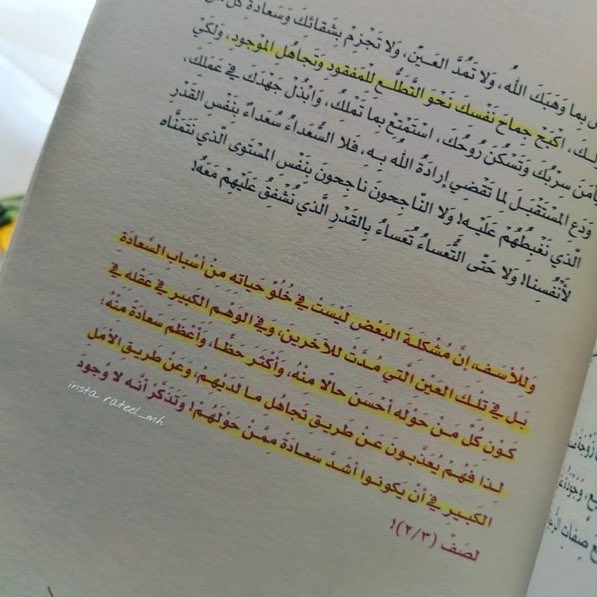 بِما وَهَبَكَ اللهُ، وَلا تَمُدَّ العَيْنَ، وَلا تَجْزِمْ بِشَقائِكَ وَسَعادَةِ كُلِّ
لَكَ، اكْبَحْ جِماحَ نَفْسِكَ نَحْوَ التَّطَلُّعِ لِلْمَفْقودِ وَتَجاهُلِ المَوْجودِ، وَلِكَيْ
يَأمَنَ سِرْبُكَ وَتَسْكُنَ روحُكَ، اسْتَمْتِعْ بِما تَملِكُ، وَابْذُلْ جهْدَكَ في عَمَلِكَ،
وَدَعِ المُسْتَقْبَلَ لِما تَقْضي إرادَةُ اللهِ بِهِ، فَلا السُّعَداءُ سُعَداءُ بِنَفْسِ القَدْرِ
الَّذي نَغْبِطُهُمْ عَلَيْهِ! وَلا النّاجِحونَ ناجِحونَ بِنَفْسِ المُسْتَوى الَّذي نَتَمَنّاهُ
لِأَنْفُسِنا! وَلا حَتّى التُّعَساءُ تُعَساءُ بِالقَدْرِ الَّذي نُشْفِقُ عَلَيْهِمْ مَعَهُ!
وَلِلْأسَفِ، إنَّ مُشْكِلَةَ البَعْضِ لَيْسَتْ في خُلُوِّ حَياتِهِ مِنْ أسْبابِ السَّعادَةِ
بَلْ في تِلْكَ العَيْنِ الَّتي مُدَّتْ لِلآخَرينَ، وَفي الوَهْمِ الكَبيرِ في عَقْلِهِ في
كَوْنِ كُلِّ مَنْ حَوْلَهُ أحْسَنَ حالًا مِنْهُ، وَأكْثَرَ حَظًّا، وَأعْظَمَ سَعادَةً مِنْهُ؛
لِذا فَهُمْ يُعَذَّبونَ عَنْ طَريقِ تَجاهُلِ ما لَدَيْهِمْ، وَعَنْ طَريقِ الأمَلِ
الكَبيرِ في أنْ يَكونوا أشَدَّ سَعادَةً مِمَّنْ حَوْلَهُمْ! وَتَذَكَّرْ أنَّهُ لا وُجودَ
لِصَفِّ (٢/٣)!
insta rateel_mh